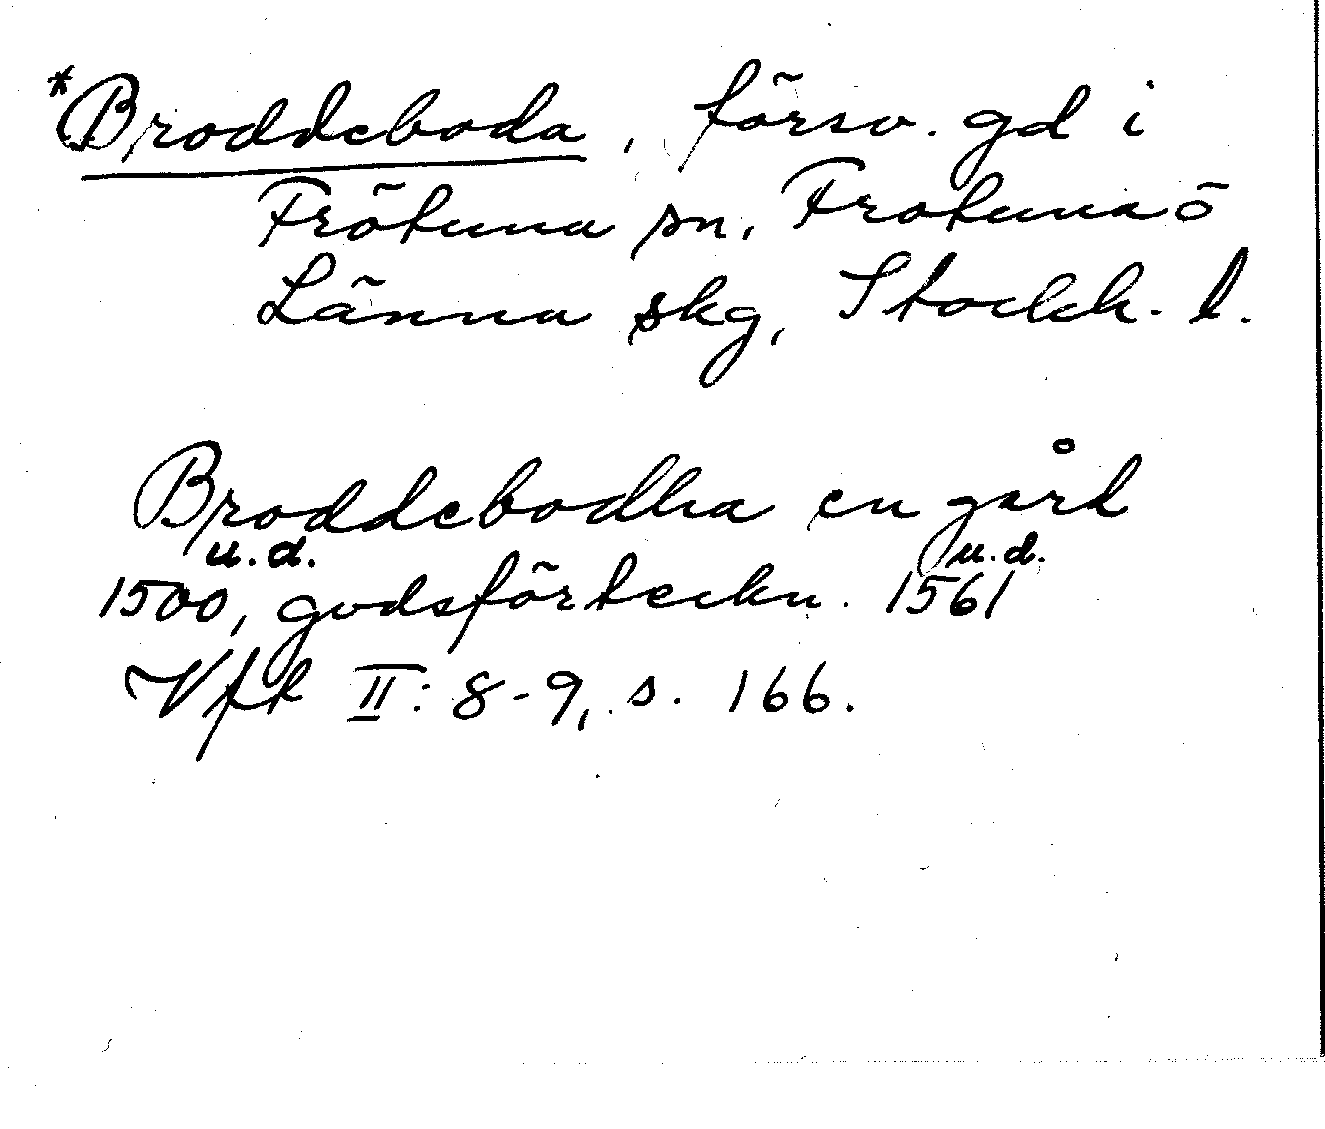 *Broddeboda, försv. gd i
Frötuna sn, Frötuna o
Länna skg, Stockh. l.
Broddebodha en gård
u.d. u.d.
1500, godsförteckn. 1561
Vft II: 8-9, s. 166.